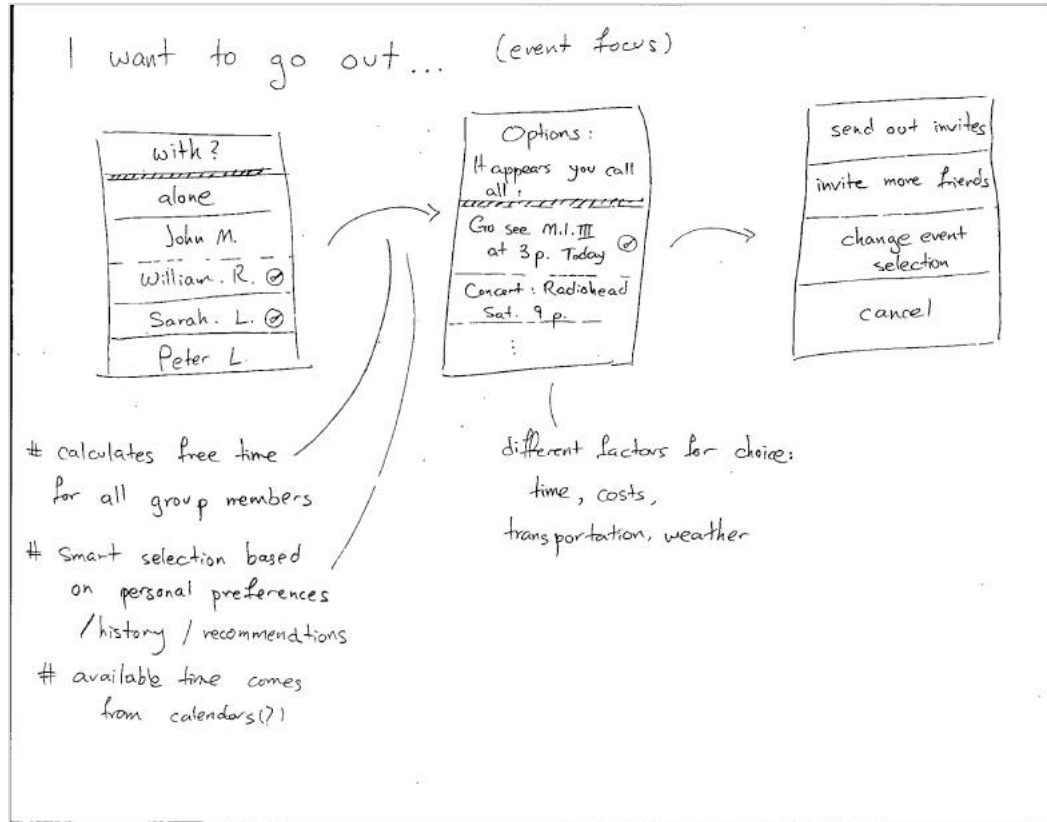 I want to go out... (event focus)
with?
alone
John M.
William. R.
Sarah. L.
Peter L.
Options:
It appears you call
all:
Go see M.I.III
at 3p. Today
Concert: Radiohead
Sat. 9 p.
⋮
send out invites
invite more friends
change event
selection
cancel
# calculates free time
for all group members
# Smart selection based
on personal preferences
/history / recommendtions
# available time comes
from calendars(?)
different factors for choice:
time, costs,
transportation, weather